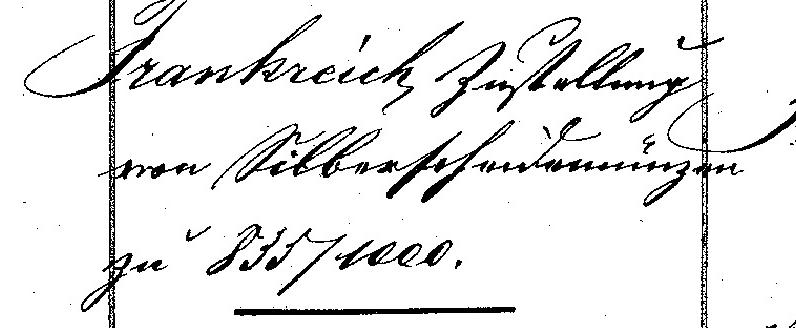 Frankreich, Zustellung
von Silberscheidemünzen
zu 835/1000.